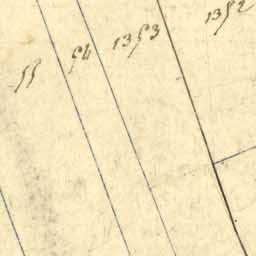 1352
1353
54
55